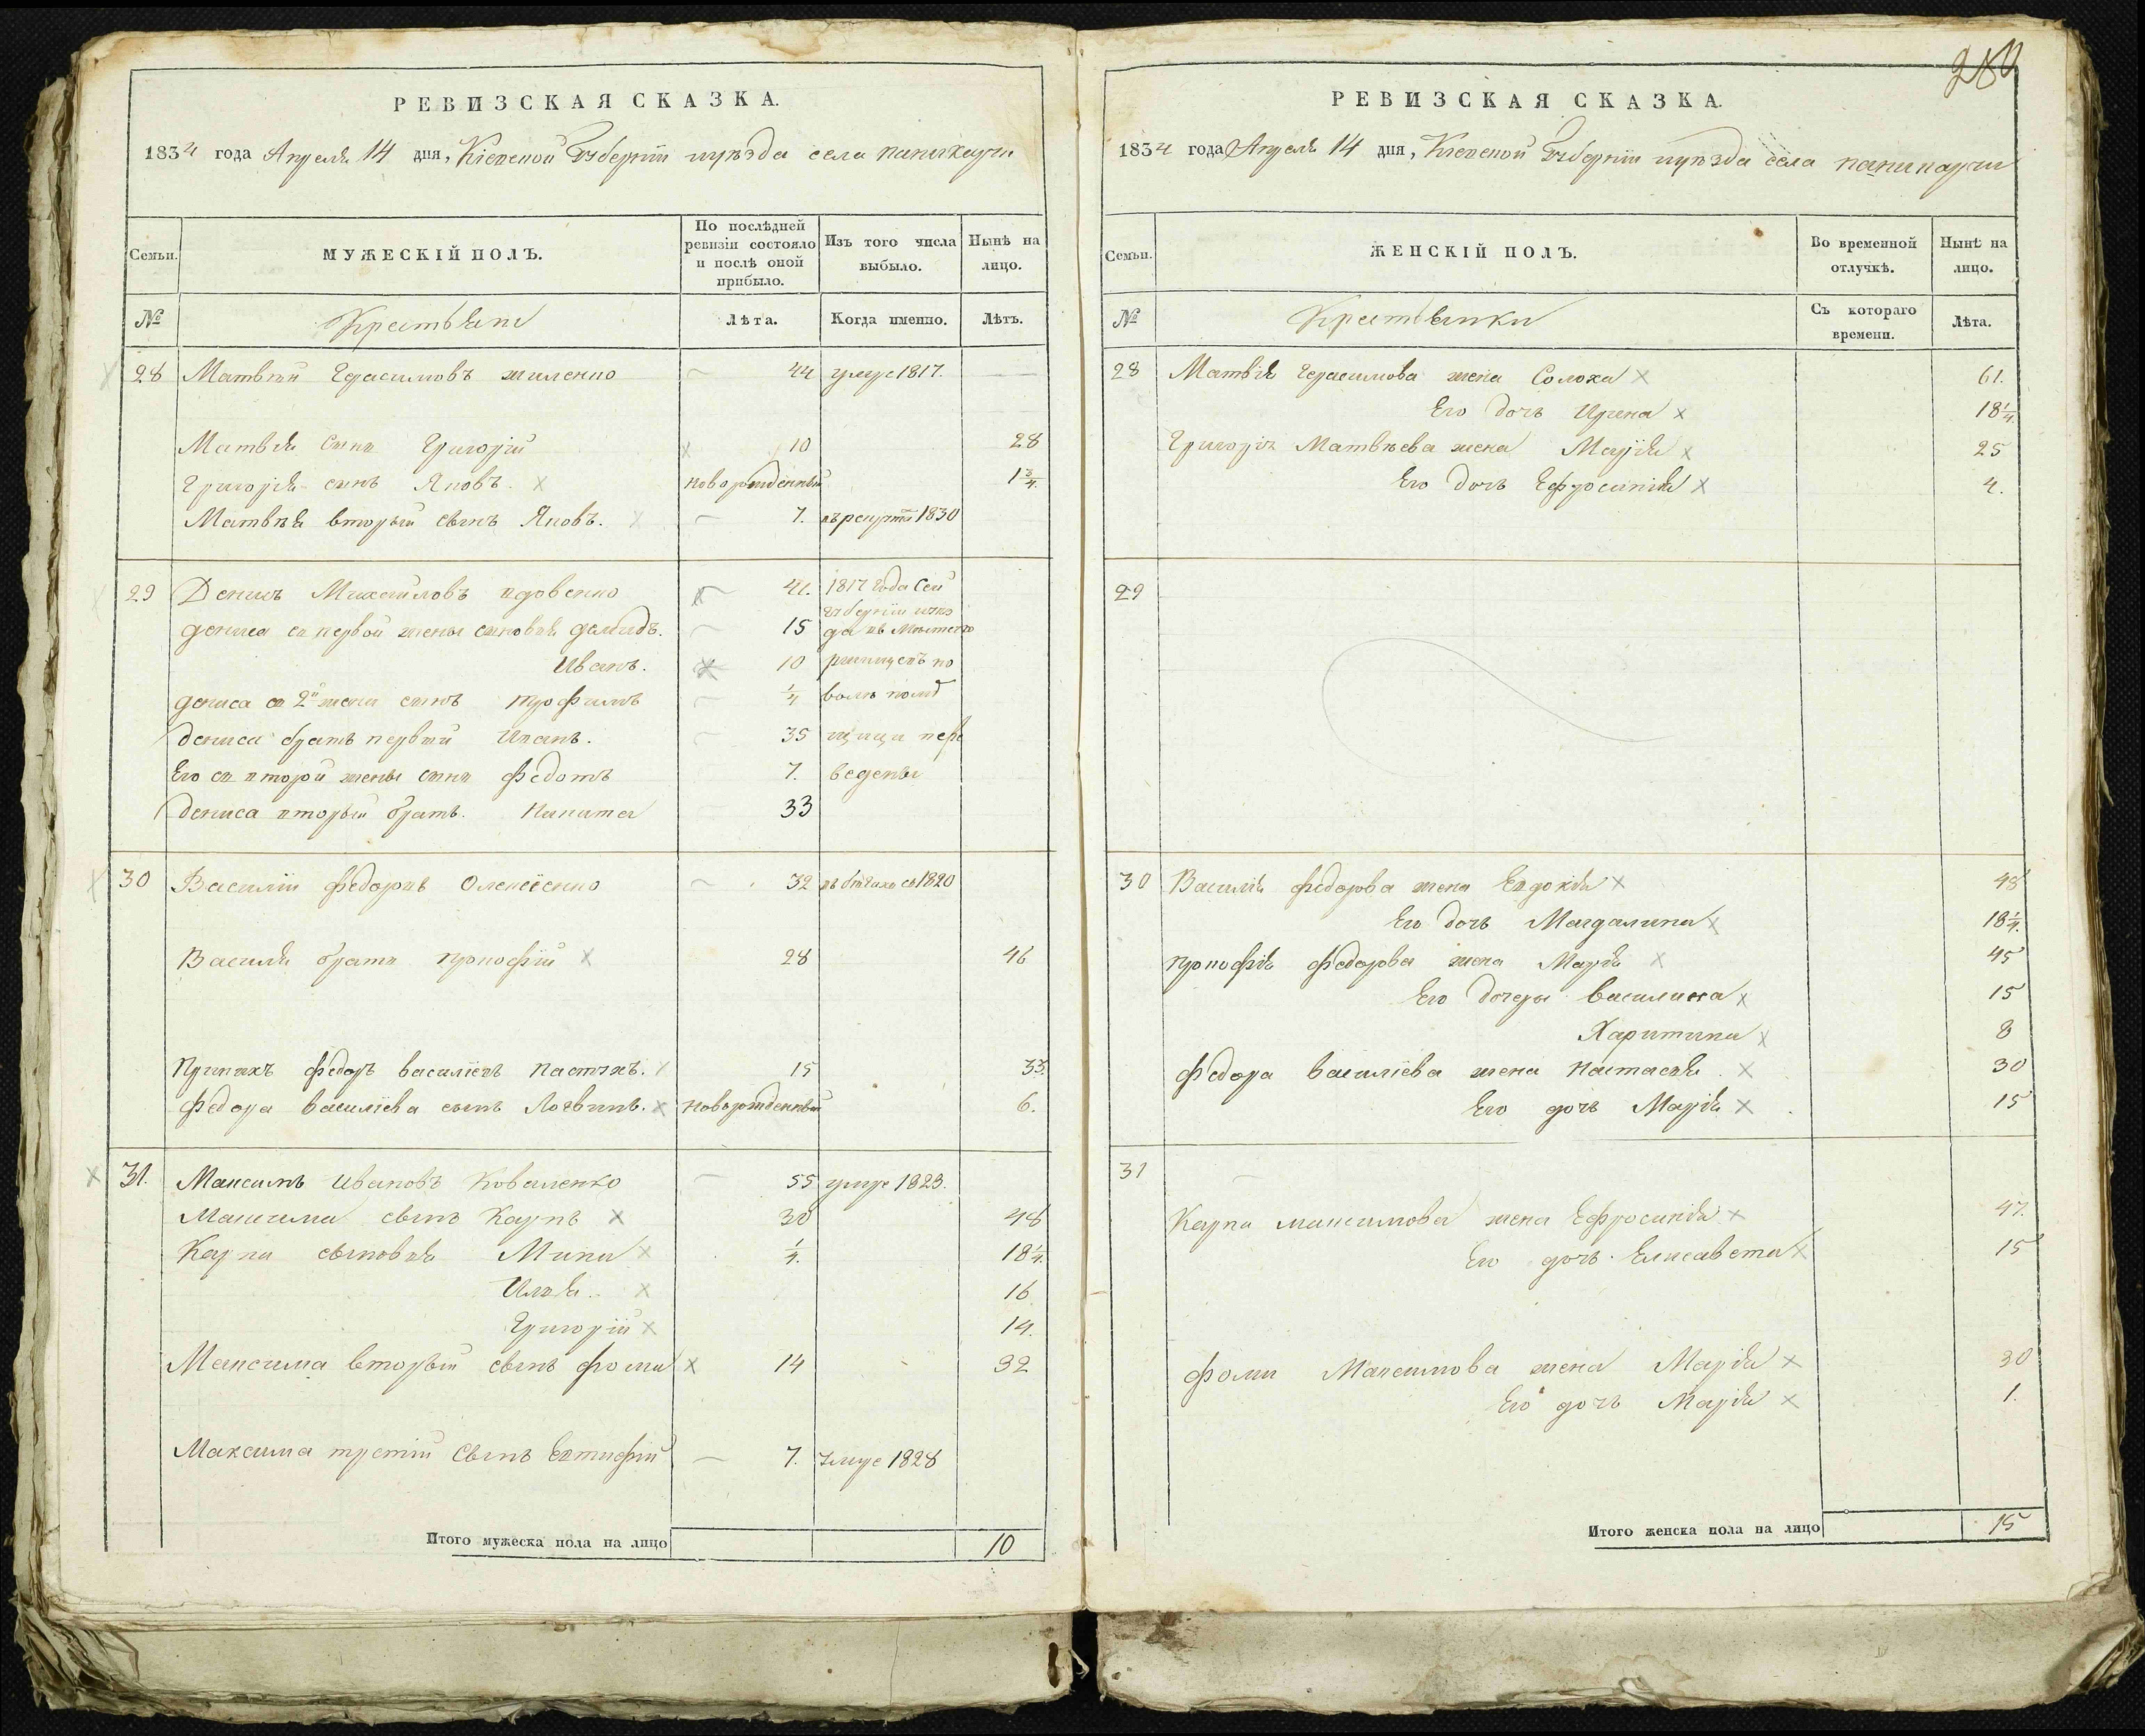 280
РЕВИЗСКАЯ СКАЗКА.
1834 года Апреля 14 дня, Кіевской Губерніи и уезда села
Семьи.
МУЖЕСКІЙ ПОЛЪ.
По послѣдней ревизіи состояло и послѣ оной прибыло.
Изъ того числа выбыло.
Нынѣ на лицо.
№
Крестьяне
Лѣта.
Когда именно.
Лѣтъ.
28 Матвѣй Герасимовъ 44 умре 1817.
Матвѣя сынъ Григорій 10 28
Григорія сынъ Яковъ. новорожденный 1 3/4
Матвѣя вторый сынъ Яковъ. 7. въ рекруты 1830
29 Денисъ Михайловъ вдовенко 41. 1817 года Сей
губерніи
Дениса съ первой жены сыновья Демидъ. 15 да въ
Иванъ. 10 по
Дениса съ 2й жены сынъ трофимъ 1/4 воли
Дениса братъ первый Иванъ. 35 щица пере
Его съ второй жены сынъ федотъ 7. ведены
Дениса вторый братъ. Никита 33
30 Василій федоровъ Олексѣенко 32 въ бѣгахъ съ 1820
Василія братъ прокофій 28 46
федоръ василіевъ 15 33.
федора василіева сынъ Логвинъ. новорожденный 6.
31. Максимъ Ивановъ Коваленко 55 умре 1823.
Максима сынъ Карпъ 30 48
Карпа сыновья Мина 1/4. 18 1/4.
Илья. 16
Григорій 14.
Максима вторый сынъ фома 14 32
Максима третій сынъ Евтифій 7. умре 1828
Итого мужеска пола на лицо 10
РЕВИЗСКАЯ СКАЗКА.
1834 года Апреля 14 дня, Кіевской Губерніи и уезда села
Семьи.
ЖЕНСКІЙ ПОЛЪ.
Во временной отлучкѣ.
Нынѣ на лицо.
№
Крестьянки
Съ котораго времени.
Лѣта.
28 Матвѣя Герасимова жена Солоха 61.
Его дочь Ирина 18 1/4
Григорія Матвѣева жена Марія 25
Его дочь Ефросинія 4.
29
30 Василія федорова жена Евдокія 48
Его дочь Магдалина 18 1/4.
прокофія федорова жена Марія 45
Его дочери василина 15
Харитина 8
федора василіева жена Настасія 30
Его дочь Марія 15
31
Карпа максимова жена Ефросинія 47.
Его дочь Елисавета 15
фомы Максимова жена Марія 30
Его дочь Марія 1.
Итого женска пола на лицо 15